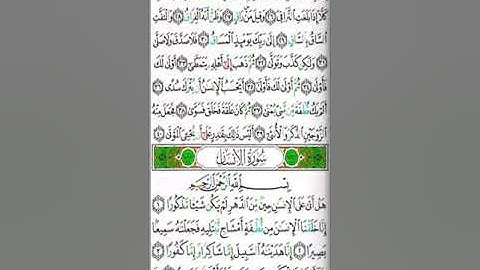 كَلَّا إِذَا بَلَغَتِ ٱلتَّرَاقِيَ ٢٦ وَقِيلَ مَنْ رَاقٍ ٢٧ وَظَنَّ أَنَّهُ ٱلْفِرَاقُ ٢٨
ٱلسَّاقُ بِٱلسَّاقِ ٢٩ إِلَىٰ رَبِّكَ يَوْمَئِذٍ ٱلْمَسَاقُ ٣٠ فَلَا صَدَّقَ وَلَا صَلَّىٰ
٣١ وَلَٰكِن كَذَّبَ وَتَوَلَّىٰ ٣٢ ثُمَّ ذَهَبَ إِلَىٰ أَهْلِهِ يَتَمَطَّىٰ ٣٣ أَوْلَىٰ لَكَ
فَأَوْلَىٰ ٣٤ ثُمَّ أَوْلَىٰ لَكَ فَأَوْلَىٰ ٣٥ أَيَحْسَبُ ٱلْإِنسَٰنُ أَن يُتْرَكَ سُدًى ٣٦
أَلَمْ يَكُ نُطْفَةً مِّن مَّنِيٍّ يُمْنَىٰ ٣٧ ثُمَّ كَانَ عَلَقَةً فَخَلَقَ فَسَوَّىٰ ٣٨ فَجَعَلَ مِنْهُ
ٱلزَّوْجَيْنِ ٱلذَّكَرَ وَٱلْأُنثَىٰ ٣٩ أَلَيْسَ ذَٰلِكَ بِقَٰدِرٍ عَلَىٰ أَن يُحْـِۧيَ ٱلْمَوْتَىٰ ٤٠
سُورَةُ الإِنسَانِ
بِسْمِ ٱللَّهِ ٱلرَّحْمَٰنِ ٱلرَّحِيمِ
هَلْ أَتَىٰ عَلَى ٱلْإِنسَٰنِ حِينٌ مِّنَ ٱلدَّهْرِ لَمْ يَكُن شَيْـًٔا مَّذْكُورًا ١
إِنَّا خَلَقْنَا ٱلْإِنسَٰنَ مِن نُّطْفَةٍ أَمْشَاجٍ نَّبْتَلِيهِ فَجَعَلْنَٰهُ سَمِيعًۢا
بَصِيرًا ٢ إِنَّا هَدَيْنَٰهُ ٱلسَّبِيلَ إِمَّا شَاكِرًا وَإِمَّا كَفُورًا ٣